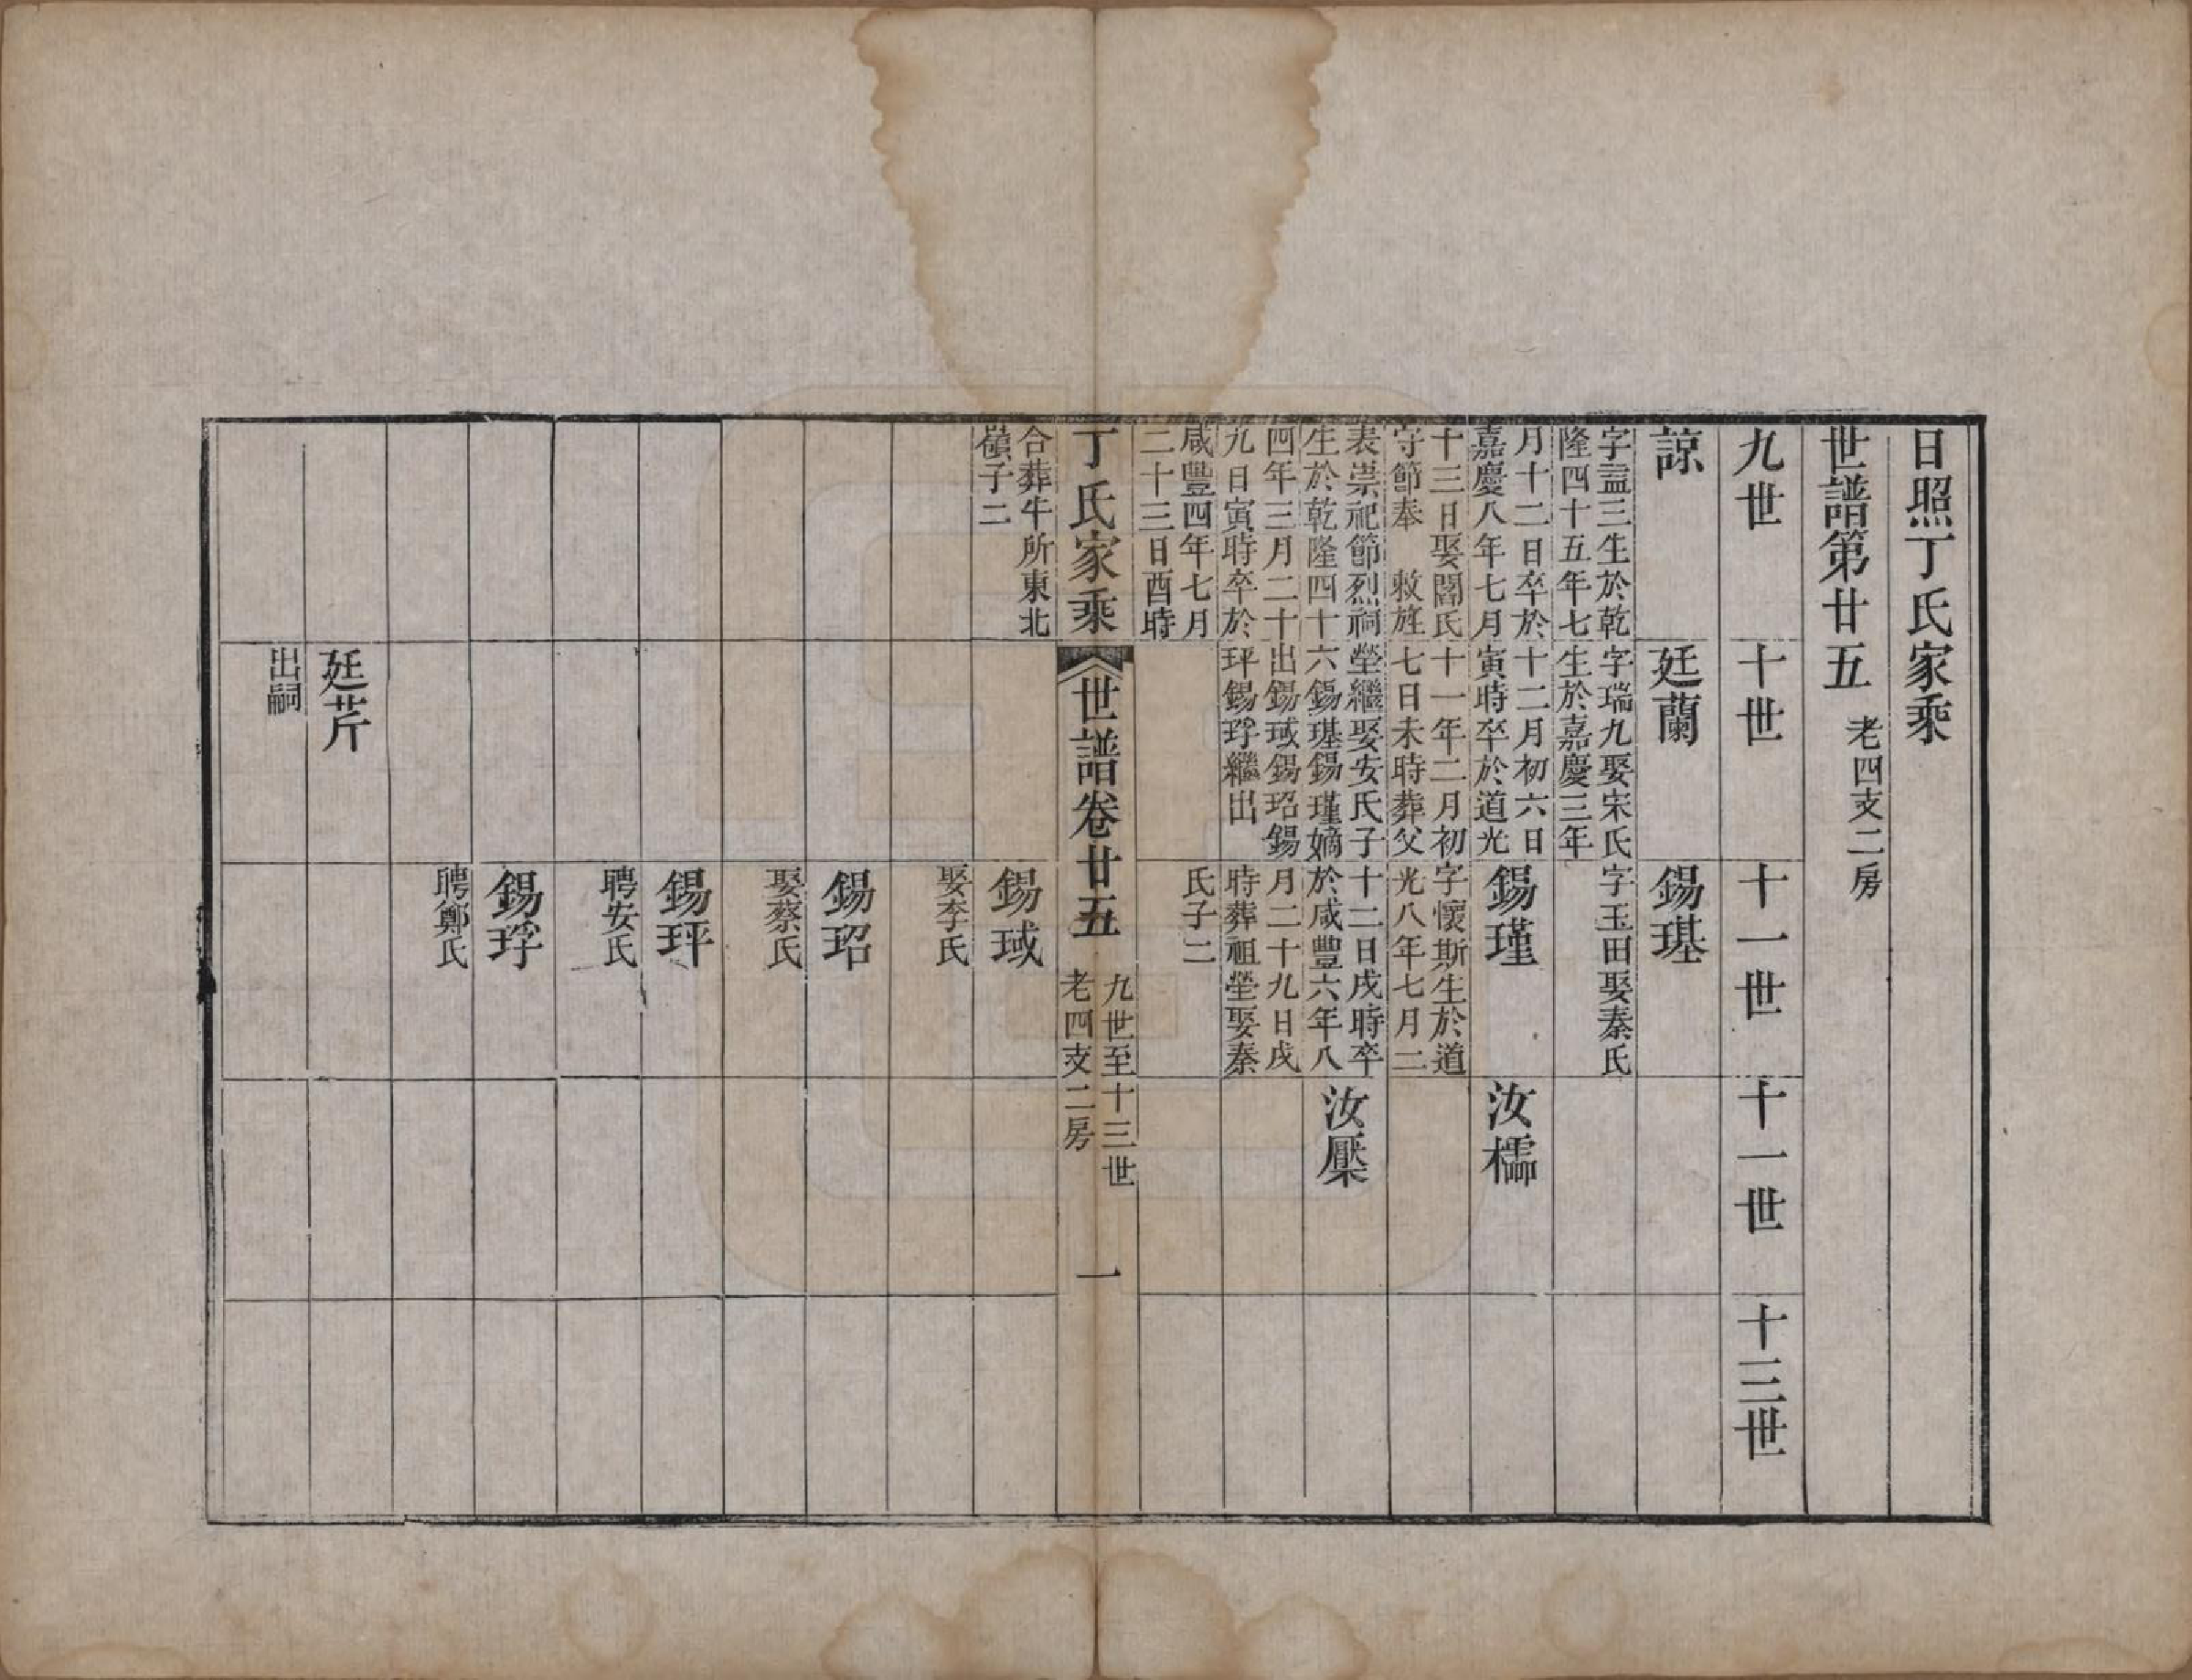 日照丁氏家乘
世譜第廿五 老四支二房
九世
十世
十一世
十一世
十三世
諒
字誩三生於乾
隆四十五年七
月十二日卒於
嘉慶八年七月
十三日娶閻氏
守節奉 敕旌
表崇祀節烈祠
生於乾隆四十
四年三月二十
九日寅時卒於
咸豐四年七月
二十三日酉時
合葬牛所東北
嶺子二
廷蘭
字瑞九娶宋氏
生於嘉慶三年
十二月初六日
寅時卒於道光
十一年二月初
七日未時葬父
塋繼娶安氏子
六錫璂錫瑾嫡
出錫珬錫玿錫
玶錫琈繼出
錫璂
字玉田娶秦氏
錫瑾
字懷斯生於道
光八年七月二
十二日戌時卒
於咸豐六年八
月二十九日戌
時葬祖塋娶秦
氏子二
汝檽
汝檿
丁氏家乘
世譜卷廿五
九世至十三世
老四支二房
一
錫珬
娶李氏
錫玿
娶蔡氏
錫玶
聘安氏
錫琈
聘鄭氏
廷芹
出嗣